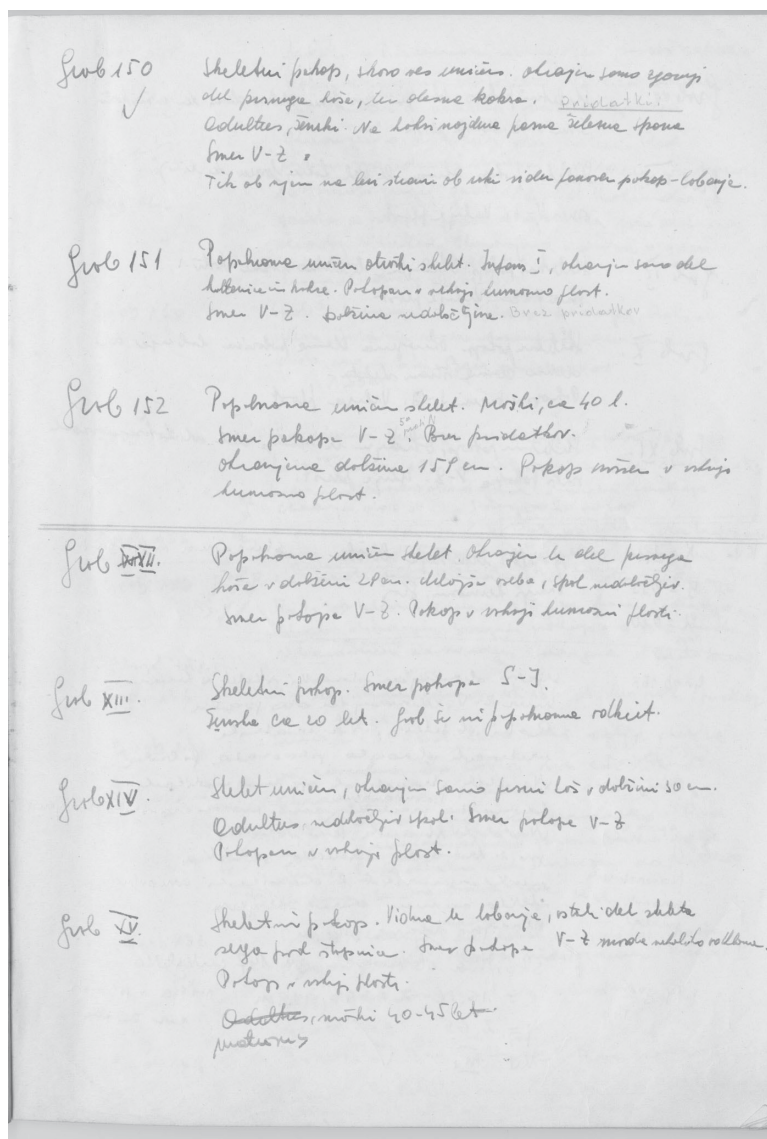 Grob 150 Skeletni pokop, skoro ves uničen. Ohranjen samo zgornji
del prsnega koša, ter desna kolka. pridatki:
Adultus, ženski. Na kolku najdena pasna železna spona
Smer V-Z.
Tik ob njem na levi strani ob roki viden ponoven pokop-lobanja.
Grob 151 Popolnoma uničen otroški skelet. Infans I, ohranjen samo del
in kolka. Pokopan v vrhnji humozno plast.
Smer V-Z. Dolžina nedoločljiva. Brez pridatkov
Grob 152 Popolnoma uničen skelet. Moški, ca 40 l.
Smer pokopa V-Z. Brez pridatkov.
Ohranjena dolžina 159 cm. Pokop vložen v vrhnjo
humozno plast.
Grob Popolnoma uničen skelet. Ohranjen le del prsnega
koša v dolžini 29 cm. oseba, spol nedoločljiv.
Smer pokopa V-Z. Pokop v vrhnji humozni plasti.
Grob XIII. Skeletni pokop. Smer pokopa S-J.
Ženska ca 20 let. Grob še ni popolnoma odkrit.
Grob XIV. Skelet uničen, ohranjen samo prsni koš v dolžini 30 cm.
Adultus, nedoločljiv spol. Smer pokopa V-Z
Pokopan v vrhnjo plast.
Grob XV. Skeletni pokop. Vidna le lobanja, ostali del skeleta
sega pod stopnico. Smer pokopa V-Z morda nekoliko
Pokop v vrhnji plasti.
Adultus, moški 40-45 let.
maturus